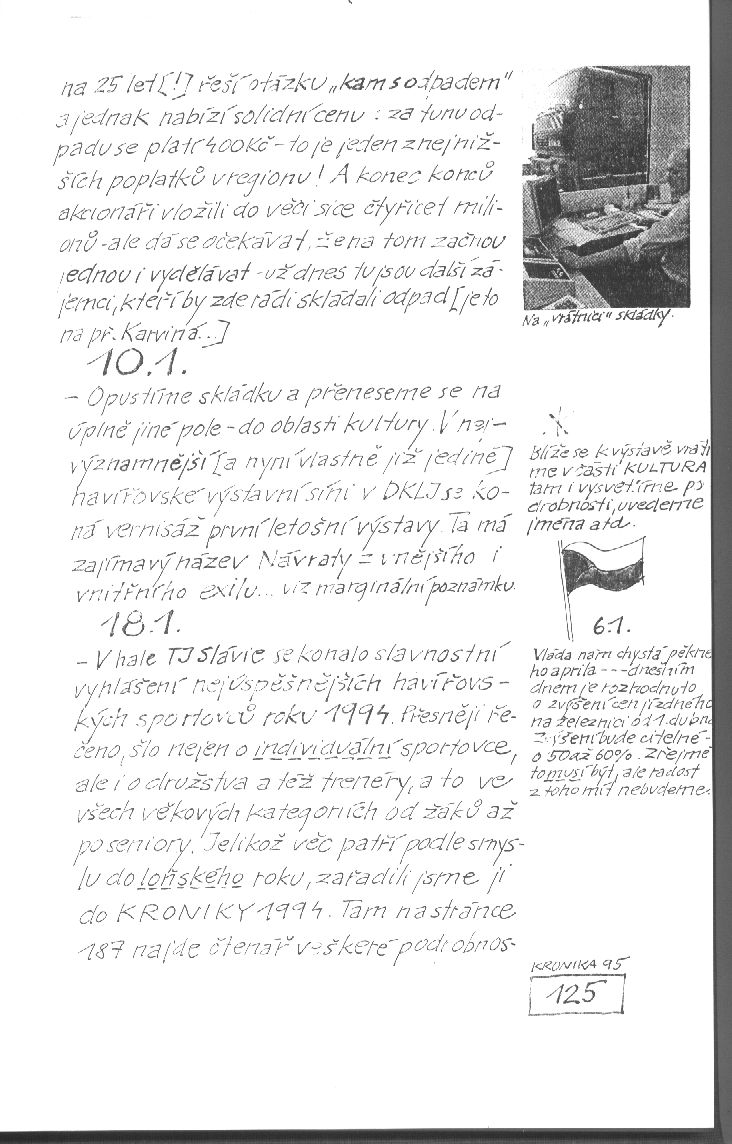 na 25 let [!] řeší otázku „kam s odpadem"
a jednak nabízí solidní cenu : za tunu od-
padu se platí 400 Kč - to je jeden z nejniž-
ších poplatků v regionu! A konec konců
akcionáři vložili do věci sice čtyřicet mili-
onů - ale dá se očekávat, že na tom začnou
jednou i vydělávat - už dnes tu jsou další zá-
jemci, kteří by zde rádi skládali odpad [je to
na př. Karviná...]
10.1.
- Opustíme skládku a přeneseme se na
úplně jiné pole - do oblasti kultury. V nej-
významnější [a nyní vlastně již jediné]
havířovské výstavní síni v DKLJ se ko-
ná vernisáž první letošní výstavy. Ta má
zajímavý název Návraty z vnějšího i
vnitřního exilu... viz marginální poznámku.
18.1.
- V hale TJ Slávie se konalo slavnostní
vyhlášení nejúspěšnějších havířovs-
kých sportovců roku 1994. Přesněji ře-
čeno, šlo nejen o individuální sportovce,
ale i o družstva a též trenéry, a to ve
všech věkových kategoriích od žáků až
po seniory. Jelikož věc patří podle smys-
lu do loňského roku, zařadili jsme ji
do KRONIKY 1994. Tam na stránce
187 najde čtenář veškeré podrobnos-
Na „vrátnici" skládky.
Blíže se k výstavě vrátí
me v části KULTURA
tam i vysvětlíme po
drobnosti, uvedeme
jména atd.
6.1.
Vláda nám chystá pěkné
ho apríla --- dnešním
dnem je rozhodnuto
o zvýšení cen jízdného
na železnici od 1. dubna
Zvýšení bude citelné -
o 50 až 60%. Zřejmě
to musí být, ale radost
z toho mít nebudeme.
KRONIKA 95
125